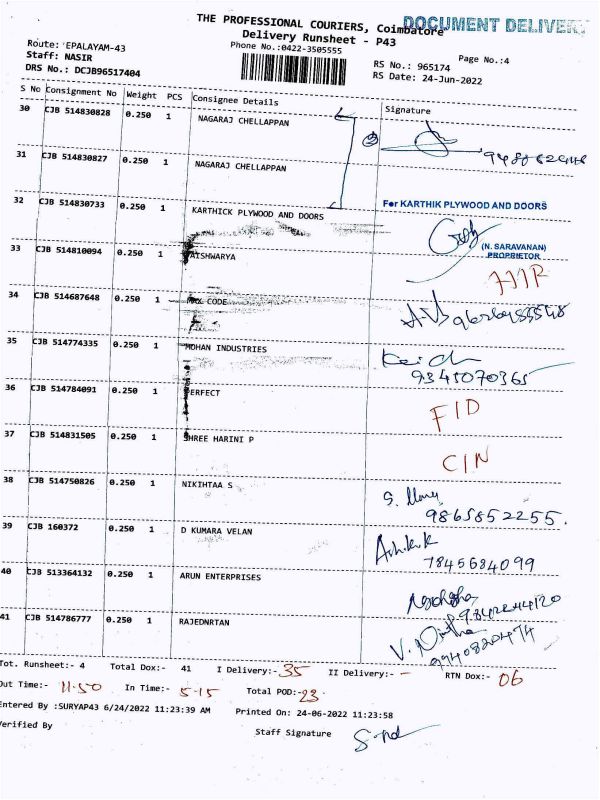 THE PROFESSIONAL COURIERS, Coimbatore
DOCUMENT DELIVERY
Delivery Runsheet - P43
Route: EPALAYAM-43
Phone No.:0422-3505555
Page No.:4
Staff: NASIR
RS No.: 965174
DRS No.: DCJB96517404
RS Date: 24-Jun-2022
S No Consignment No Weight PCS Consignee Details Signature
30 CJB 514830828 0.250 1 NAGARAJ CHELLAPPAN
31 CJB 514830827 0.250 1 NAGARAJ CHELLAPPAN
32 CJB 514830733 0.250 1 KARTHICK PLYWOOD AND DOORS
For KARTHIK PLYWOOD AND DOORS
(N. SARAVANAN)
PROPRIETOR
33 CJB 514810094 0.250 1 AISHWARYA
34 CJB 514687648 0.250 1 MAX CODE
35 CJB 514774335 0.250 1 MOHAN INDUSTRIES
9345070365
36 CJB 514784091 0.250 1 PERFECT FID
37 CJB 514831505 0.250 1 SHREE HARINI P CIN
38 CJB 514750826 0.250 1 NIKIHTAA S
9865852255.
39 CJB 160372 0.250 1 D KUMARA VELAN
7845684099
40 CJB 513364132 0.250 1 ARUN ENTERPRISES
41 CJB 514786777 0.250 1 RAJEDNRTAN
9940820474
Tot. Runsheet:- 4 Total Dox:- 41 I Delivery:- 35 II Delivery:- - RTN Dox:- 06
Out Time:- 11.50 In Time:- 5-15 Total POD:- 23
Entered By :SURYAP43 6/24/2022 11:23:39 AM Printed On: 24-06-2022 11:23:58
Verified By Staff Signature